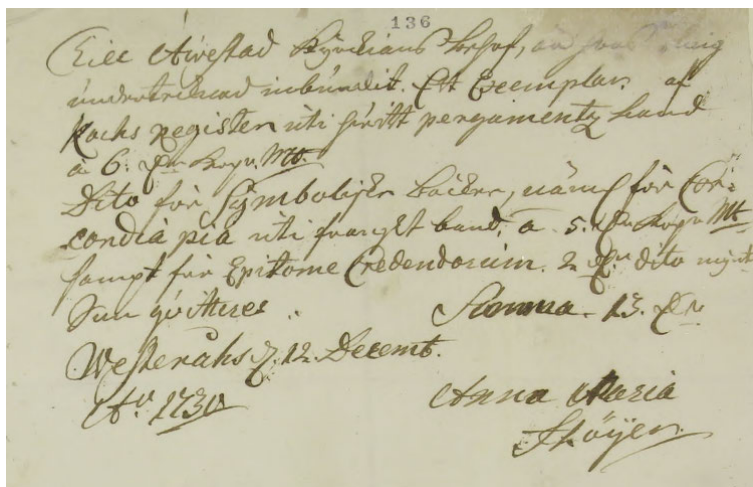 136
Till Awestad Kyrckians behof,
undertecknad inbundit. Ett Exemplar af
Kochs Register uti hwitt pergamentz band
à 6. Dr Kopr. Mt.
Dito för Symbolische Böcker, näml för Con-
cordia pia uti franskt band, à 5. Dr Kopr Mt
sampt för Epitome Credendorum. 2 Dr dito mynt
Som qvitteres Summa - 13. Dr
Westeråhs d. 12 Decemb.
Ao 1730 Anna Maria